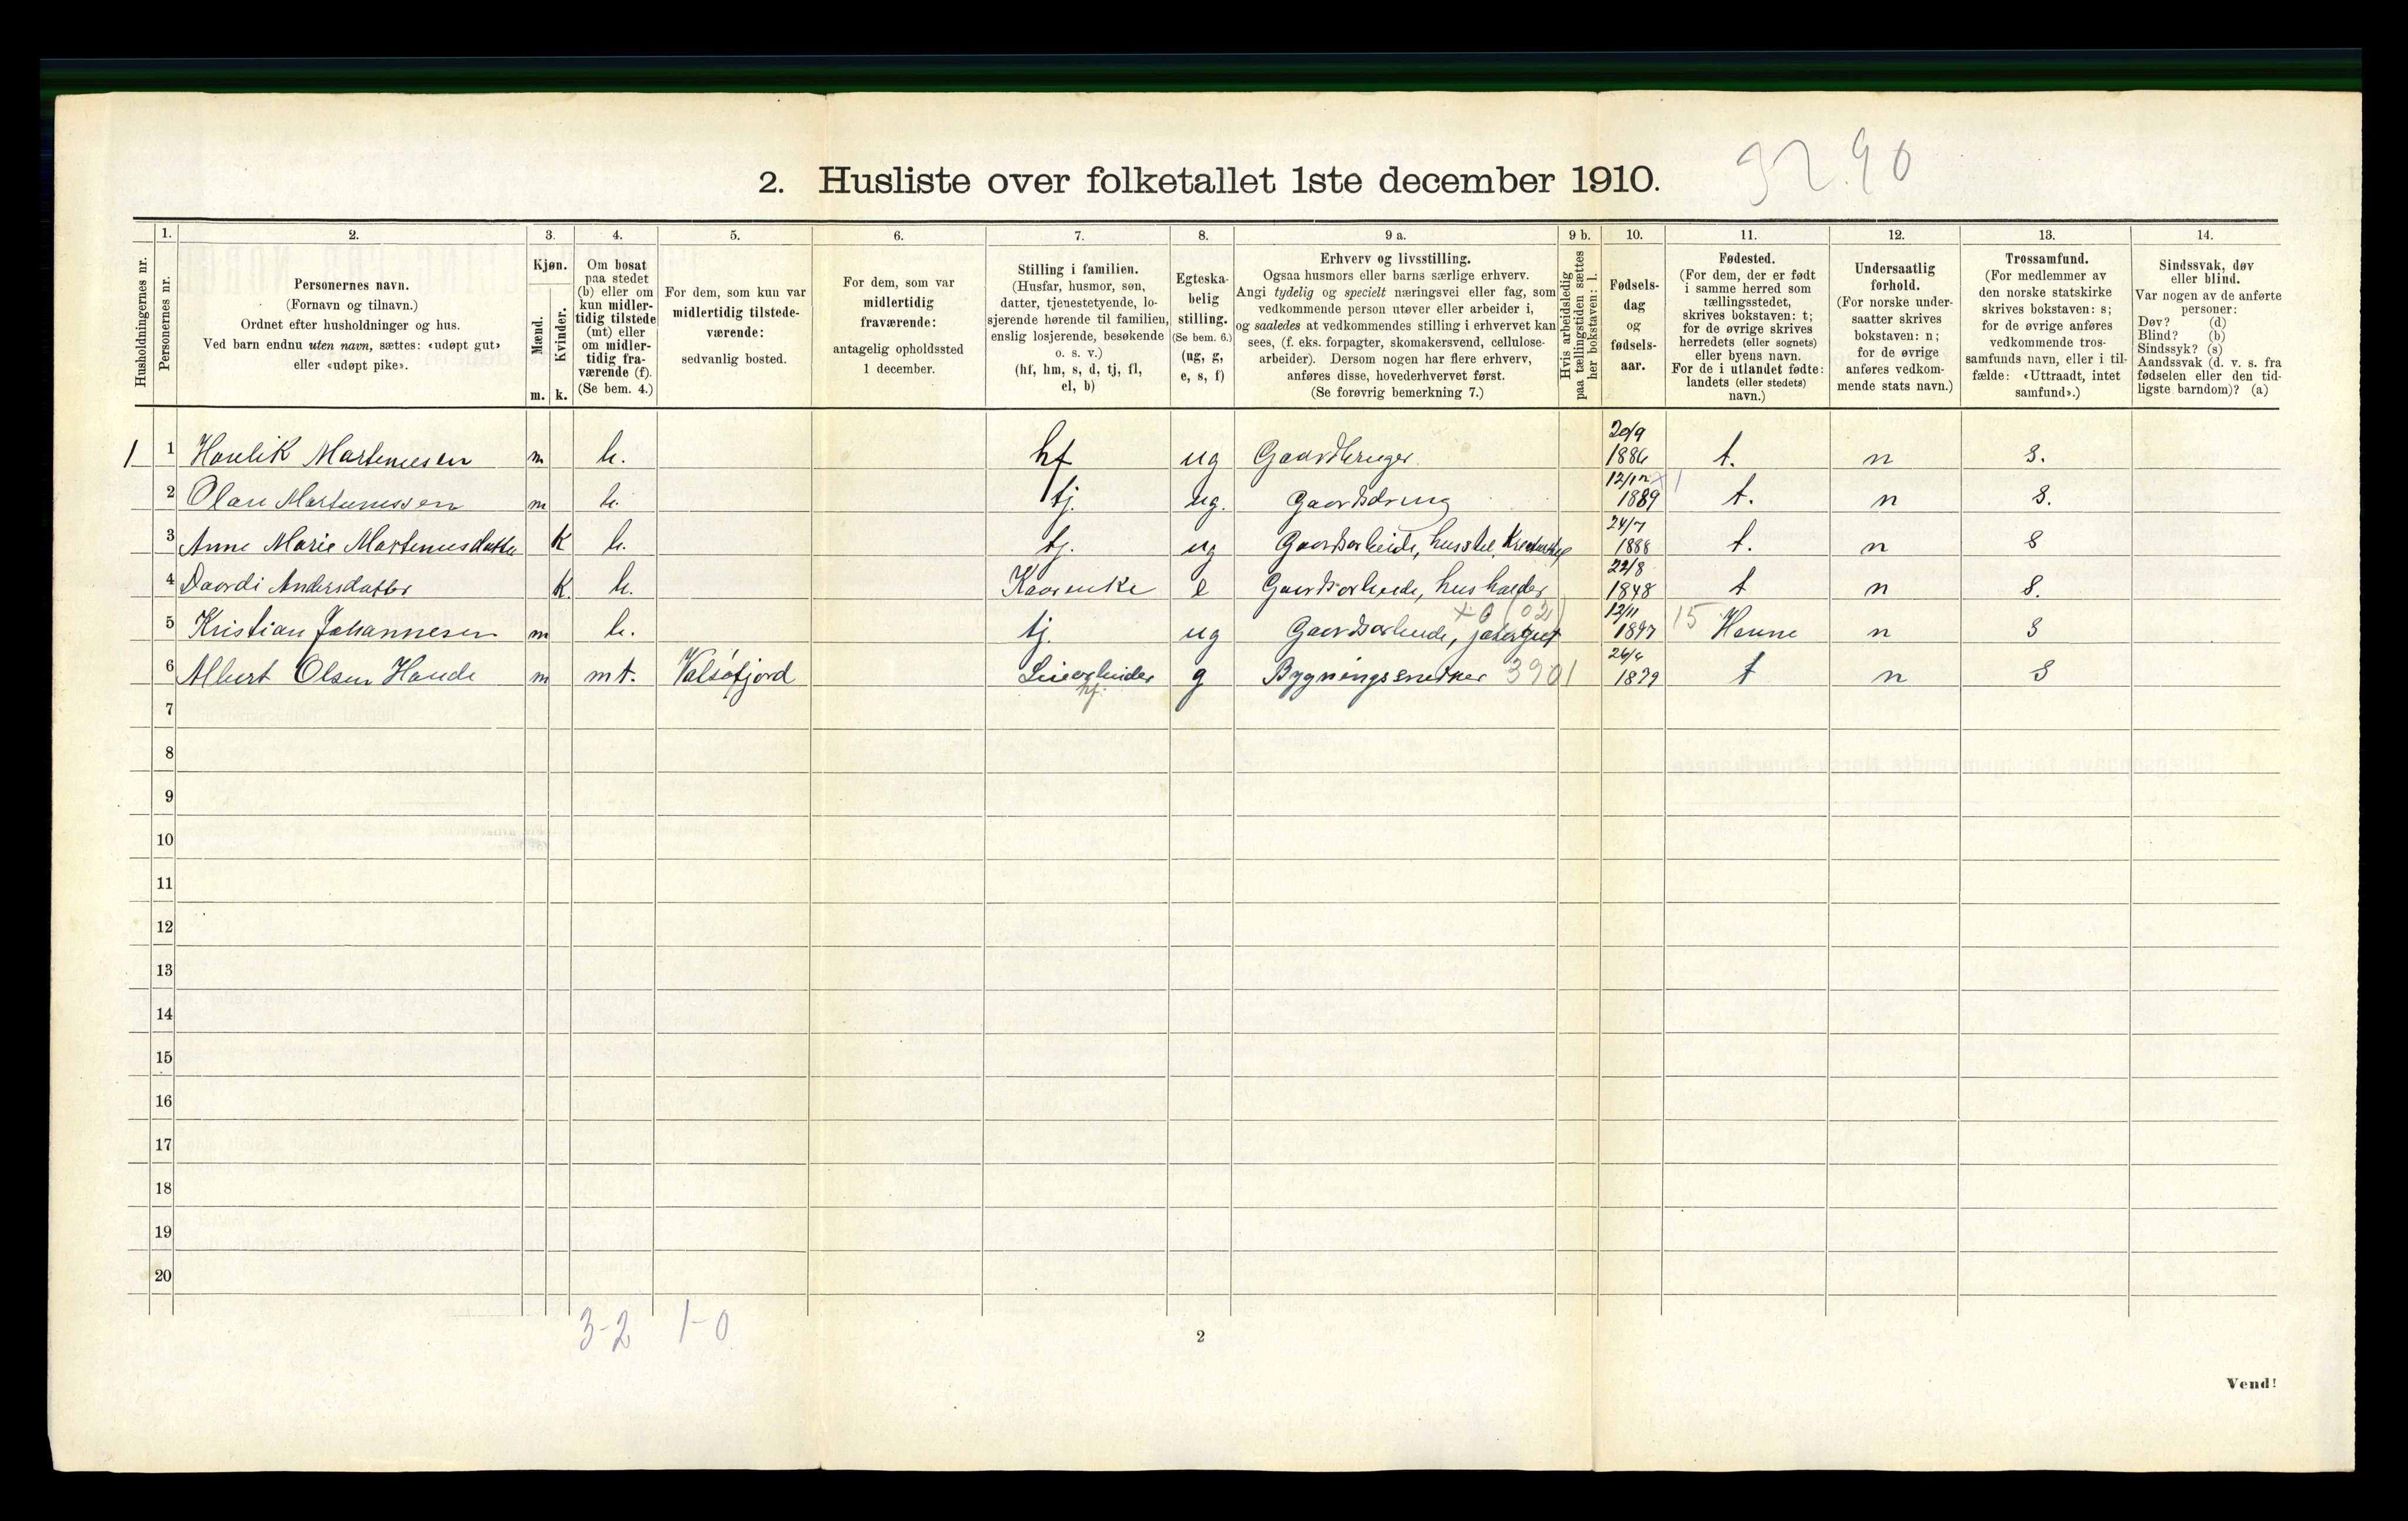 2. Husliste over folketallet 1ste december 1910. 92.90
Husholdningernes nr.
1. Personernes nr.
2. Personernes navn.
(Fornavn og tilnavn.)
Ordnet efter husholdninger og hus.
Ved barn endnu uten navn, sættes: «udøpt gut»
eller «udøpt pike».
3. Kjøn.
Mænd. Kvinder.
m. k.
4. Om bosat
paa stedet
(b) eller om
kun midler-
tidig tilstede
(mt) eller
om midler-
tidig fra-
værende (f).
(Se bem. 4.)
5. For dem, som kun var
midlertidig tilstede-
værende:
sedvanlig bosted.
6. For dem, som var
midlertidig
fraværende:
antagelig opholdssted
1 december.
7. Stilling i familien.
(Husfar, husmor, søn,
datter, tjenestetyende, lo-
sjerende hørende til familien,
enslig losjerende, besøkende
o. s. v.)
(hf, hm, s, d, tj, fl,
el, b)
8. Egteska-
belig
stilling.
(Se bem. 6.)
(ug, g,
e, s, f)
9 a. Erhverv og livsstilling.
Ogsaa husmors eller barns særlige erhverv.
Angi tydelig og specielt næringsvei eller fag, som
vedkommende person utøver eller arbeider i,
og saaledes at vedkommendes stilling i erhvervet kan
sees, (f. eks. forpagter, skomakersvend, cellulose-
arbeider). Dersom nogen har flere erhverv,
anføres disse, hovederhvervet først.
(Se forøvrig bemerkning 7.)
9 b. Hvis arbeidsledig
paa tællingstiden sættes
her bokstaven: l.
10. Fødsels-
dag
og
fødsels-
aar.
11. Fødested.
(For dem, der er født
i samme herred som
tællingsstedet,
skrives bokstaven: t;
for de øvrige skrives
herredets (eller sognets)
eller byens navn.
For de i utlandet fødte:
landets (eller stedets)
navn.)
12. Undersaatlig
forhold.
(For norske under-
saatter skrives
bokstaven: n;
for de øvrige
anføres vedkom-
mende stats navn.)
13. Trossamfund.
(For medlemmer av
den norske statskirke
skrives bokstaven: s;
for de øvrige anføres
vedkommende tros-
samfunds navn, eller i til-
fælde: «Uttraadt, intet
samfund».)
14. Sindssvak, døv
eller blind.
Var nogen av de anførte
personer:
Døv? (d)
Blind? (b)
Sindssyk? (s)
Aandssvak (d. v. s. fra
fødselen eller den tid-
ligste barndom)? (a)
1 1 Martenusen m b. hf ug Gaardbruger 20/9 1886 t. n s.
2 Olau Martenussen m b. tj. ug. Gaardsdreng 12/12 1889 t. n s.
3 Anne Marie Martenusdatter K b. tj. ug Gaardsarbeide, husstel, 24/7 1888 t. n s
4 Andersdatter K b. e Gaardsarbeide, husholder 22/8 1848 t n s.
5 Kristian Johannesen m b. tj. ug Gaardsarbeide, jætergut 12/11 1897 15 n s
6 Albert Olsen m mt. Valsøfjord hf. g Bygningssnekker 3901 26/6 1879 t n s
7
8
9
10
11
12
13
14
15
16
17
18
19
20
3-2 1-0
2
Vend!